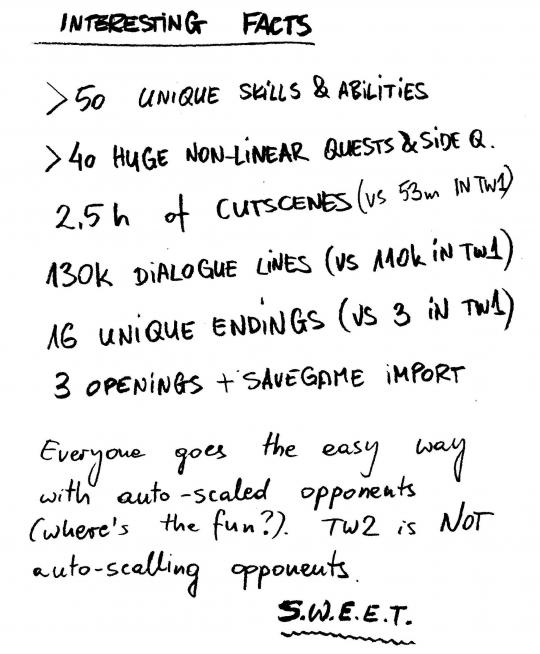 INTERESTING FACTS
>50 UNIQUE SKILLS & ABILITIES
>40 HUGE NON-LINEAR QUESTS & SIDE Q.
2,5h of CUTSCENES (VS 53m IN TW1)
130K DIALOGUE LINES (VS 110K IN TW1)
16 UNIQUE ENDINGS (VS 3 IN TW1)
3 OPENINGS + SAVEGAME IMPORT
Everyone goes the easy way
with auto-scaled opponents
(where's the fun?). TW2 is NOT
auto-scalling opponents.
S.W.E.E.T.